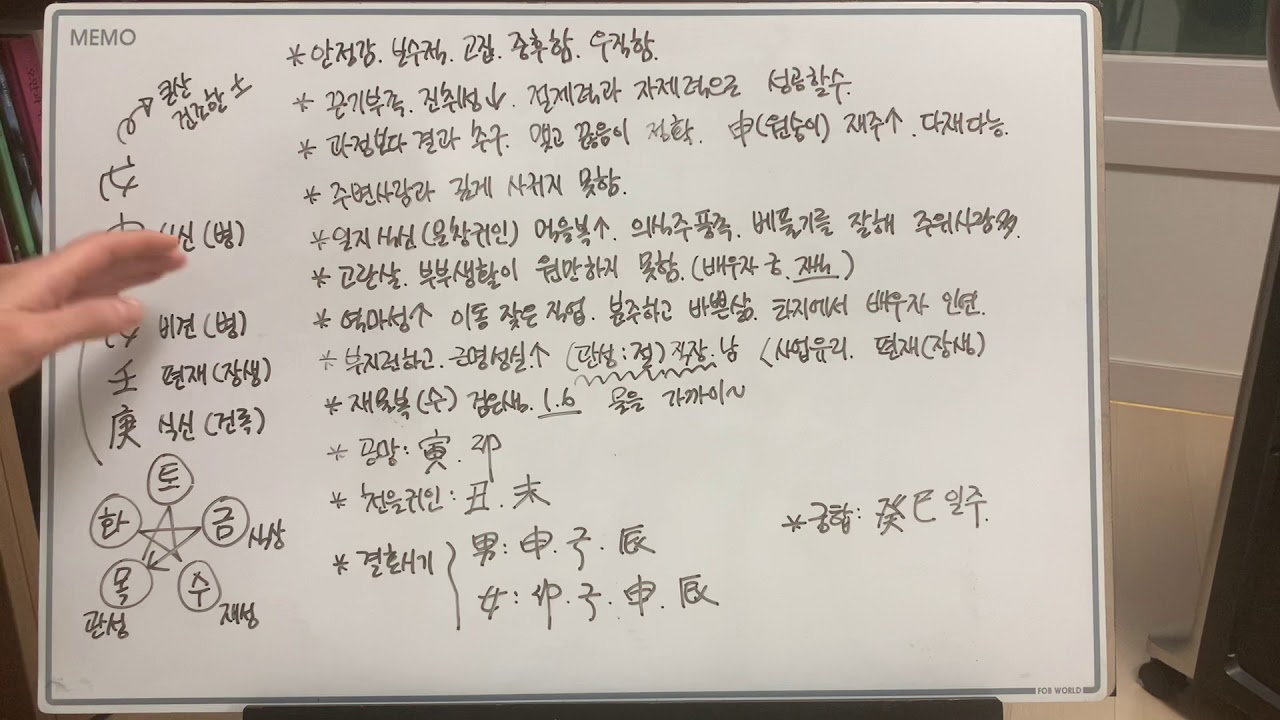 MEMO
큰산
건조한 土
戊
申 식신 (병)
戊 비견 (병)
壬 편재 (장생)
庚 식신 (건록)
토
화 금 식상
목 수
관성 재성
* 안정감. 보수적. 고집. 중후함. 우직함.
* 끈기부족. 진취성↓. 절제력과 자제력으로 성공할수.
* 과정보다 결과 추구. 맺고 끊음이 정확. 申(원숭이) 재주↑. 다재다능.
* 주변사람과 깊게 사귀지 못함.
* 일지 식신 (문창귀인) 먹을복↑. 의식주풍족. 베풀기를 잘해 주위사람多.
* 고란살. 부부생활이 원만하지 못함. (배우자 궁.
* 역마성↑ 이동 잦은 직업. 분주하고 바쁜삶. 타지에서 배우자 인연.
* 부지런하고. 근명성실↑ (관성:절) 직장.남 < 사업유리. 편재(장생)
* 재물복(수) 검은색. 1.6 물을 가까이~
* 공망: 寅. 卯
* 천을귀인: 丑. 未
* 결혼시기
男: 申. 子. 辰
女: 卯. 子. 申. 辰
* 궁합: 癸巳 일주.
FOB WORLD